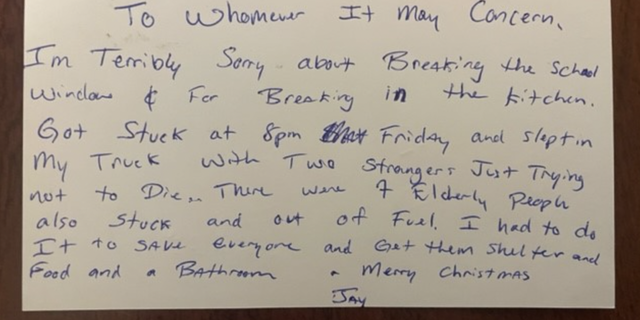 To Whomever It May Concern,
I'm Terribly Sorry about Breaking the School
Window & For Breaking in the Kitchen.
Got Stuck at 8pm Friday and slept in
My Truck with Two Strangers Just Trying
not to Die... There were 7 Elderly People
also Stuck and out of Fuel. I had to do
It to SAVE everyone and Get them Shelter and
Food and a Bathroom - Merry Christmas
Jay